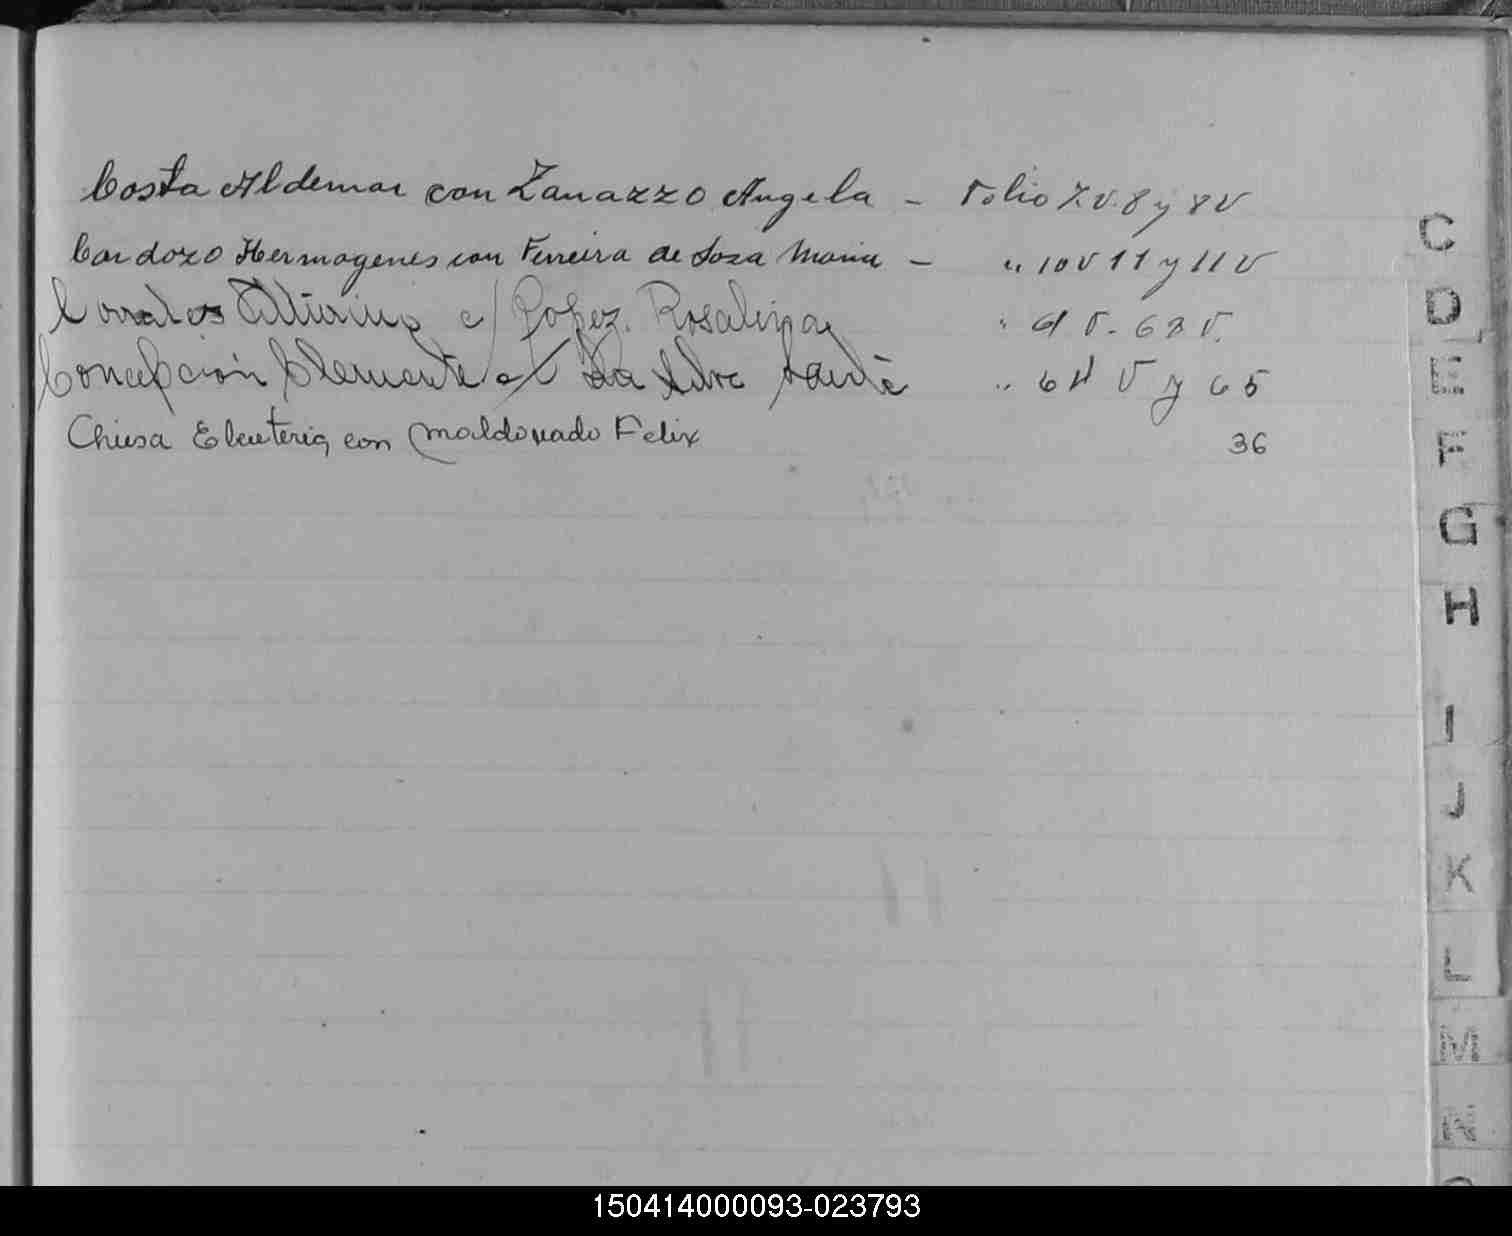 Costa Aldemar con Zanazzo Angela - Folio 7.v.8 y 8V
Cardozo Hermogenes con Ferreira de Soza Maria - " 10V 11 y 11V
c/ Lopez. Rosalina "
Concepcion Clemente c/ Da Silva " 64 V y 65
Chiesa Eleuteria con Maldonado Felix 36
C
D
E
F
G
H
I
J
K
L
M
N
150414000093-023793